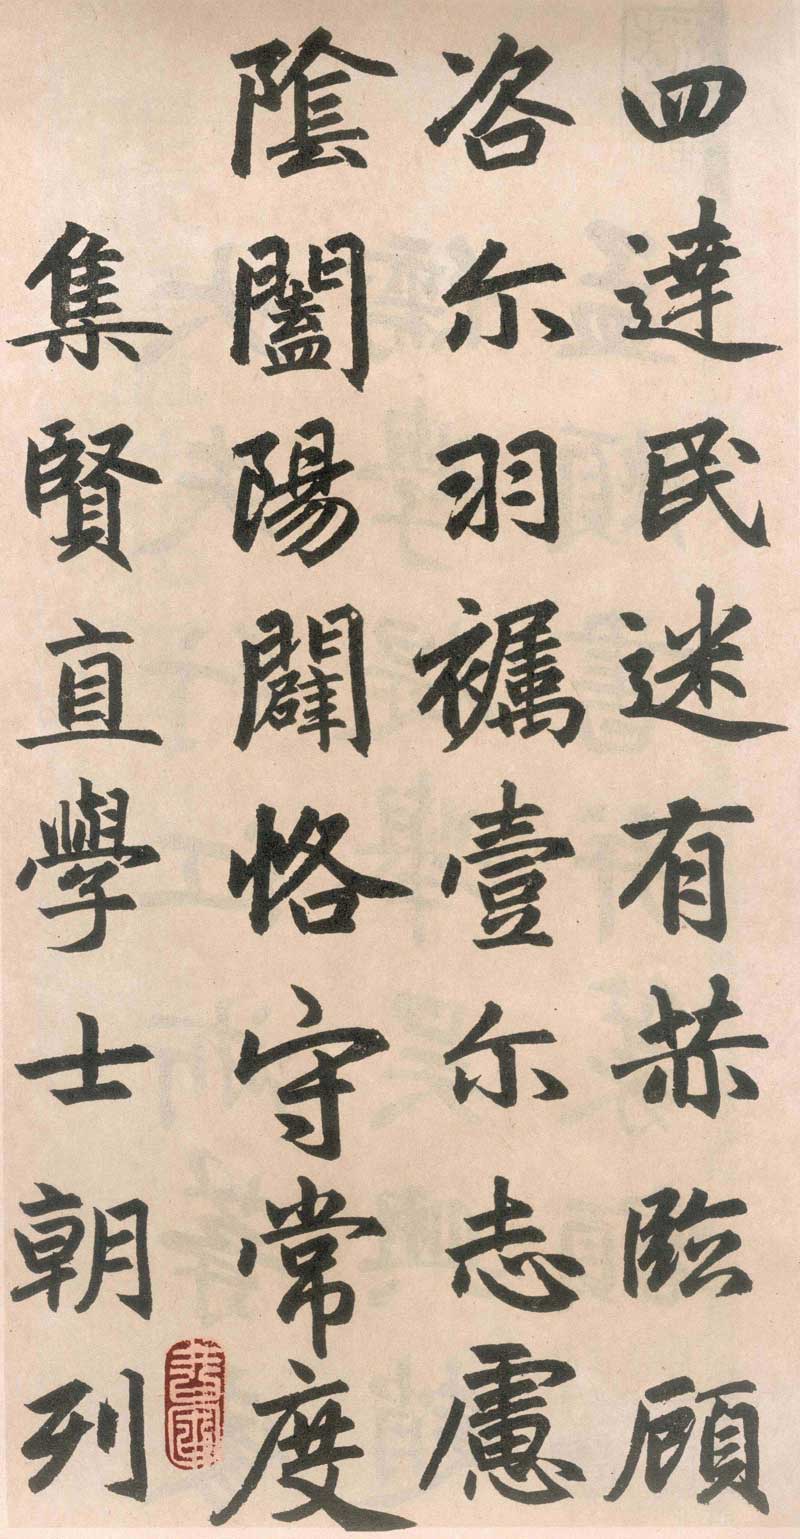 四達民迷有赫臨顧
咨尒羽襹壹尒志慮
陰闔陽闢恪守常度
集賢直學士朝列